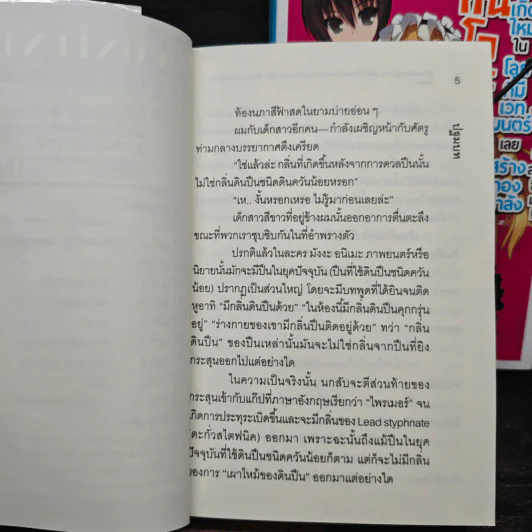 5
ปฐมบท
ท้องนภาสีฟ้าสดในยามบ่ายอ่อน ๆ
ผมกับเด็กสาวอีกคน— กำลังเผชิญหน้ากับศัตรู
ท่ามกลางบรรยากาศตึงเครียด
"ใช่แล้วล่ะ กลิ่นที่เกิดขึ้นหลังจากการดวลปืนนั้น
ไม่ใช่กลิ่นดินปืนชนิดดินควันน้อยหรอก"
"เห.. งั้นหรอกเหรอ ไม่รู้มาก่อนเลยล่ะ"
เด็กสาวสีขาวที่อยู่ข้างผมนั้นออกอาการตื่นตะลึง
ขณะที่พวกเราซุบซิบกันในที่อำพรางตัว
ปรกติแล้วในละคร มังงะ อนิเมะ ภาพยนตร์หรือ
นิยายนั้นมักจะมีปืนในยุคปัจจุบัน (ปืนที่ใช้ดินปืนชนิดควัน
น้อย) ปรากฏเป็นส่วนใหญ่ โดยจะมีบทพูดที่ได้ยินจนติด
หูอาทิ "มีกลิ่นดินปืนด้วย" "ในห้องนี้มีกลิ่นดินปืนคุกกรุ่น
อยู่" "ร่างกายของเขามีกลิ่นปืนติดอยู่ด้วย" ทว่า "กลิ่น
ดินปืน" ของปืนเหล่านั้นมันจะไม่ใช่กลิ่นจากปืนที่ยิง
กระสุนออกไปแต่อย่างใด
ในความเป็นจริงนั้น นกสับจะตีส่วนท้ายของ
กระสุนเข้ากับแก๊ปที่ภาษาอังกฤษเรียกว่า "ไพรเมอร์" จน
เกิดการประทุระเบิดขึ้นและจะมีกลิ่นของ Lead styphnate
(ตะกั่วสไตฟนิค) ออกมา เพราะฉะนั้นถึงแม้ปืนในยุค
ปัจจุบันที่ใช้ดินปืนชนิดควันน้อยก็ตาม แต่ก็จะไม่มีกลิ่น
ของการ "เผาไหม้ของดินปืน" ออกมาแต่อย่างใด
เกิด
ใหม่
ใน
โลก
เวท
มนตร์
เลย
สร้าง
กอง
กำลัง